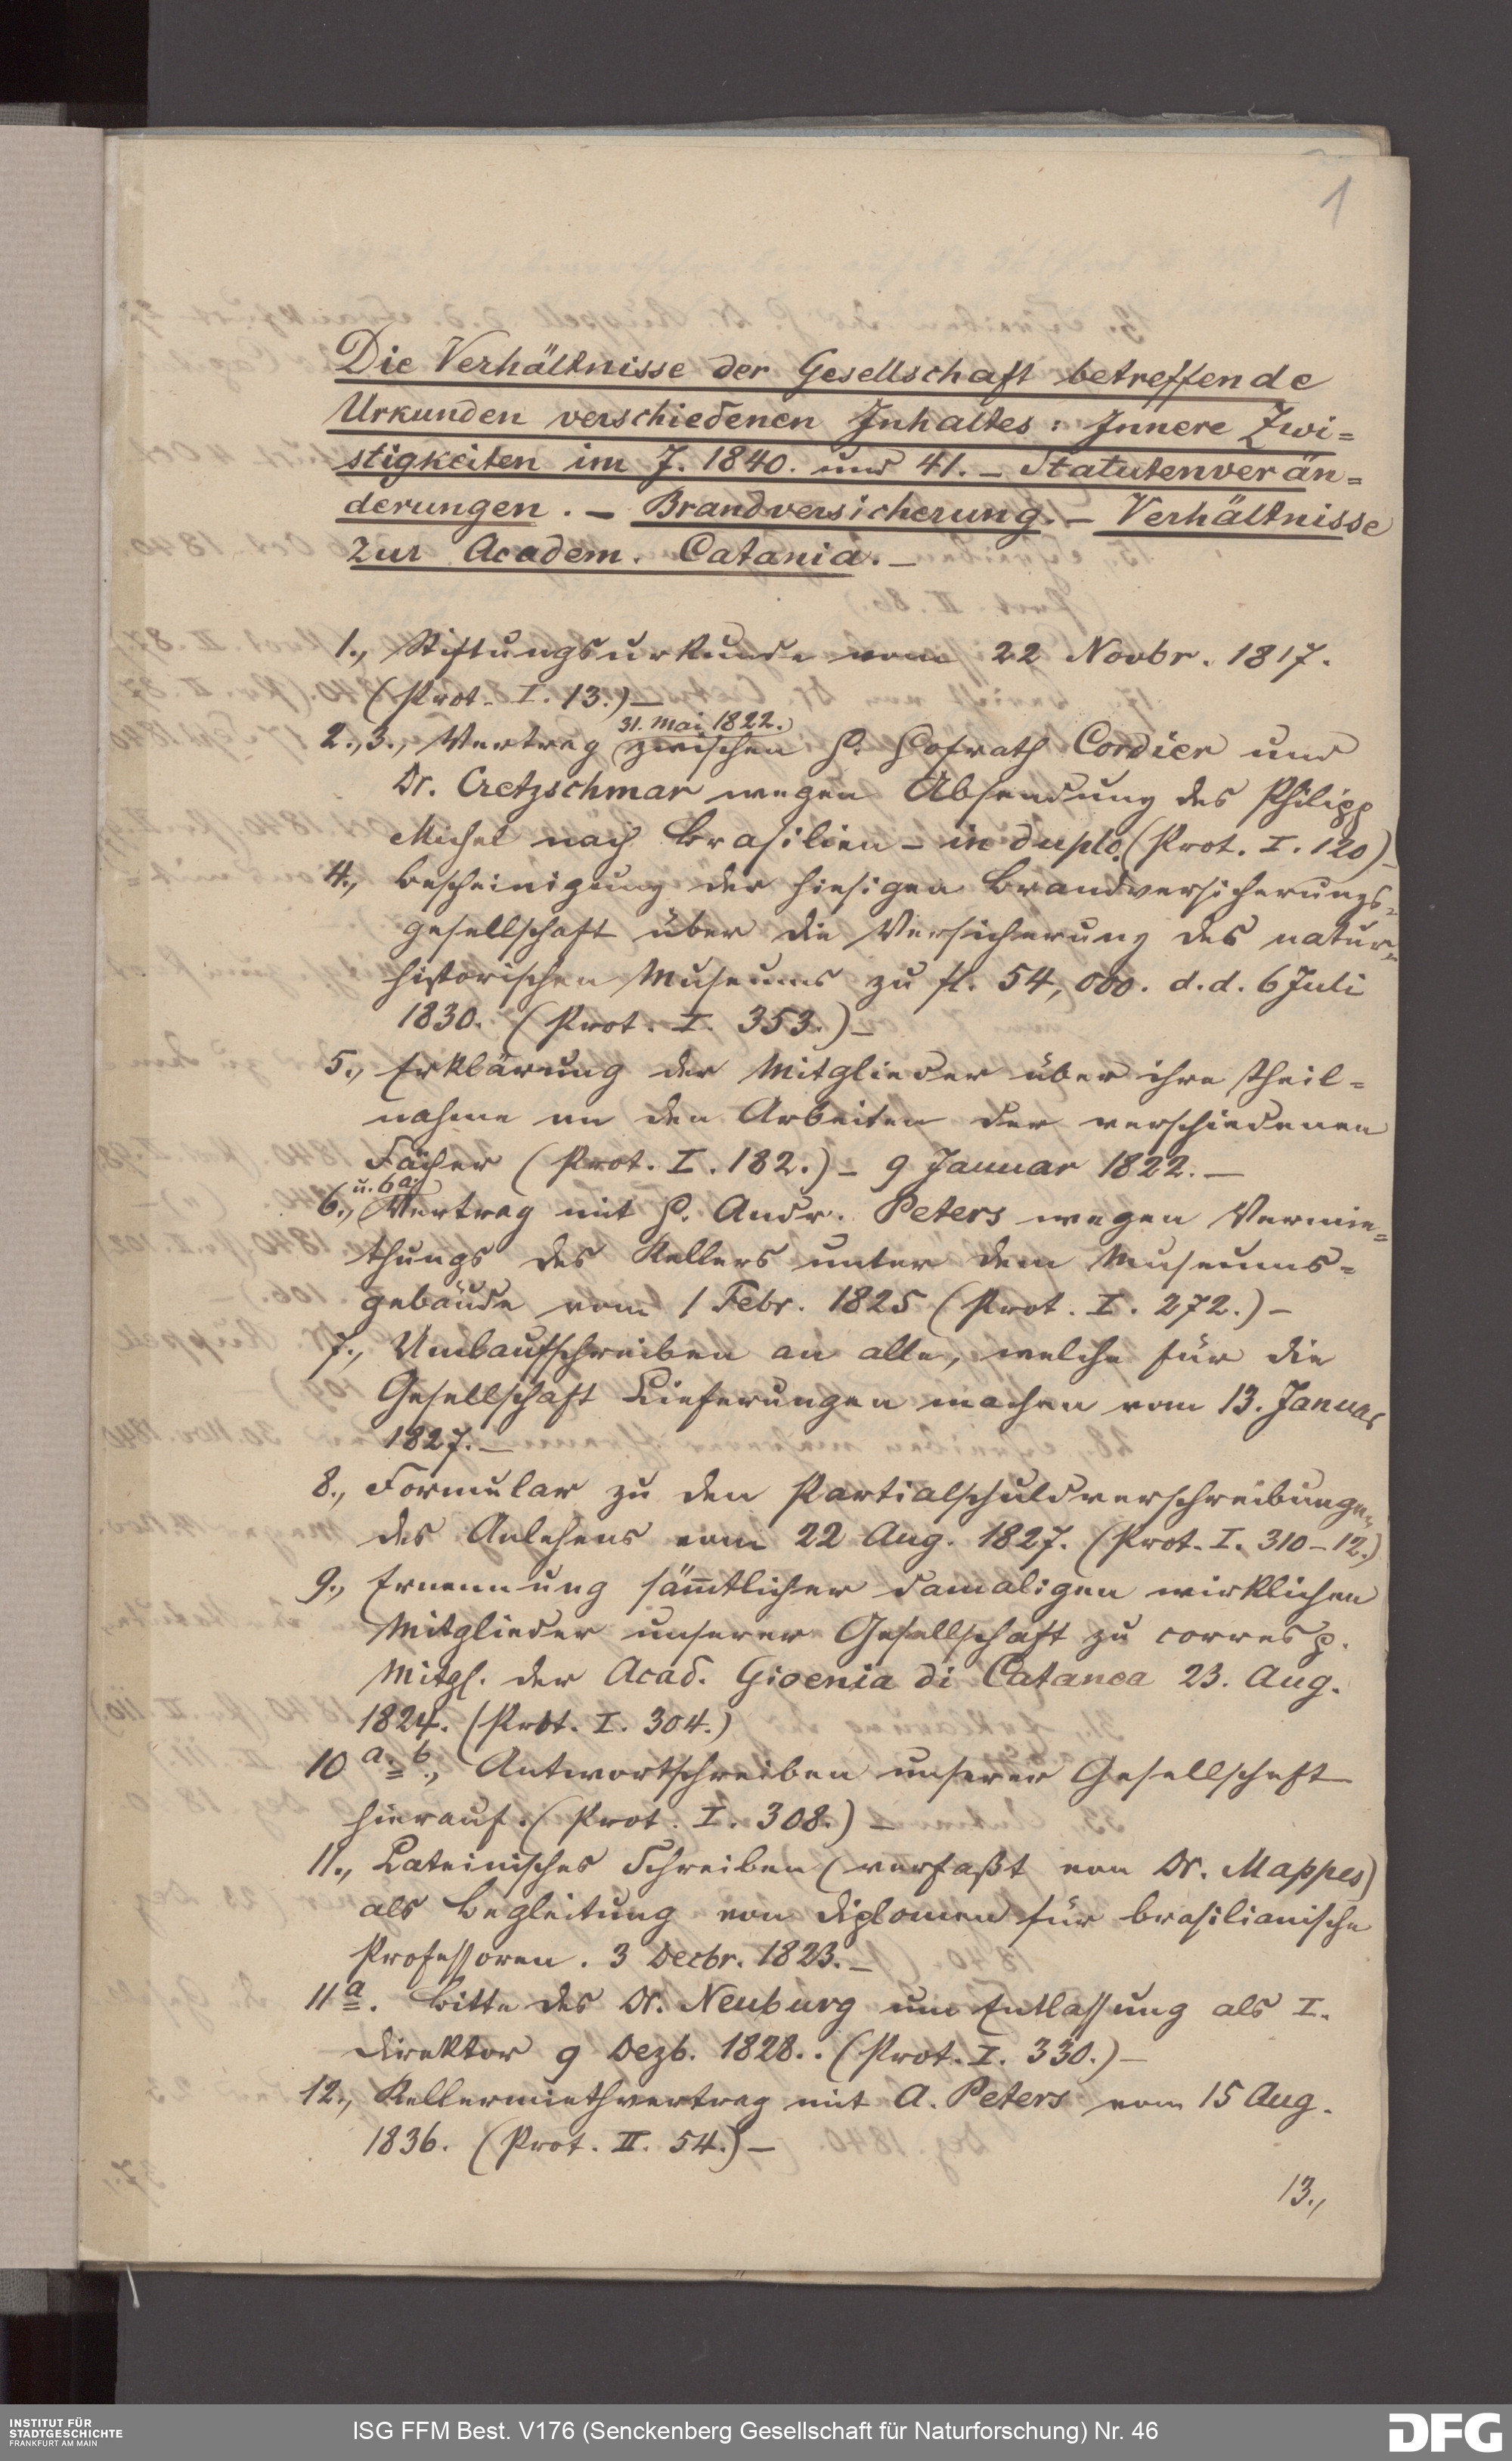 1
Die Verhältnisse der Gesellschaft betreffende
Urkunden verschiedenen Inhaltes: Innere Zwi=
stigkeiten im J. 1840. und 41. – Statutenverän=
derungen. – Brandversicherung. – Verhältnisse
zur Academ. Catania. –
1., Stiftungsurkunde vom 22 Novbr. 1817.
(Prot. I. 13.) –
31. Mai 1822.
2., 3., Vertrag zwischen H. Hofrath Cordier und
Dr. Cretzschmar wegen Absendung des Philipp
Michel nach Brasilien – in duplo. (Prot. I. 120) –
4., Bescheinigung der hiesigen Brandversicherungs=
gesellschaft über die Versicherung des natur=
historischen Museums zu fl. 54,000. d. d. 6 Juli
1830. (Prot. I. 353.) –
5., Erklärung der Mitglieder über ihre Theil=
nahme an den Arbeiten der verschiedenen
Fächer (Prot. I. 182.) – 9 Januar 1822. –
u. 6a
6., Vertrag mit H. Andr. Peters wegen Vermie=
thungs des Kellers unter dem Museums=
gebäude vom 1 Febr. 1825 (Prot. I. 272.) –
7., Umlaufschreiben an alle, welche für die
Gesellschaft Lieferungen machen vom 13. Januar
1827. –
8., Formular zu den Partialschuldverschreibungen
des Anlehens vom 22 Aug. 1827. (Prot. I. 310–12.)
9., Ernennung säm̅tlicher damaligen wirklichen
Mitglieder unserer Gesellschaft zu corresp.
Mitgl. der Acad. Gioenia di Catanea 23. Aug.
1824. (Prot. I. 304.)
10 a. b., Antwortschreiben unserer Gesellschaft
hierauf. (Prot. I. 308.) –
11., Lateinisches Schreiben (verfaßt von Dr. Mappes)
als Begleitung von Diplomen für brasilianische
Professoren. 3 Decbr. 1823. –
11a. Bitte des Dr. Neuburg um Entlassung als I.
Direktor 9 Dezb. 1828.. (Prot. I. 330.) –
12., Kellermiethvertrag mit A. Peters vom 15 Aug.
1836. (Prot. II. 54.) –
13.,
INSTITUT FÜR
STADTGESCHICHTE
FRANKFURT AM MAIN
ISG FFM Best. V176 (Senckenberg Gesellschaft für Naturforschung) Nr. 46
DFG